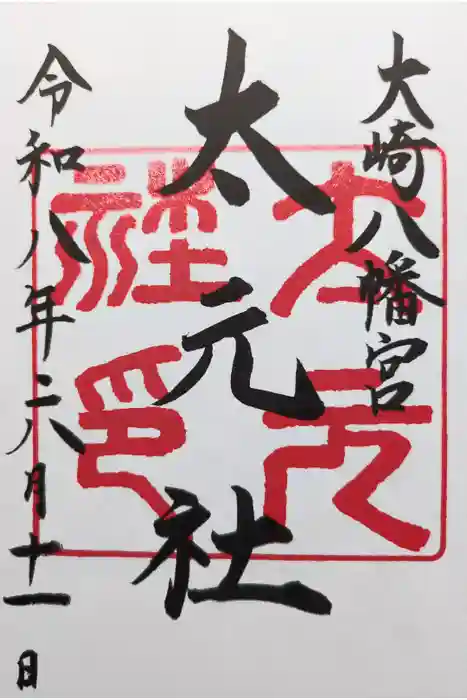 大崎八幡宮
太元社
令和八年六月十一日
太元
社印